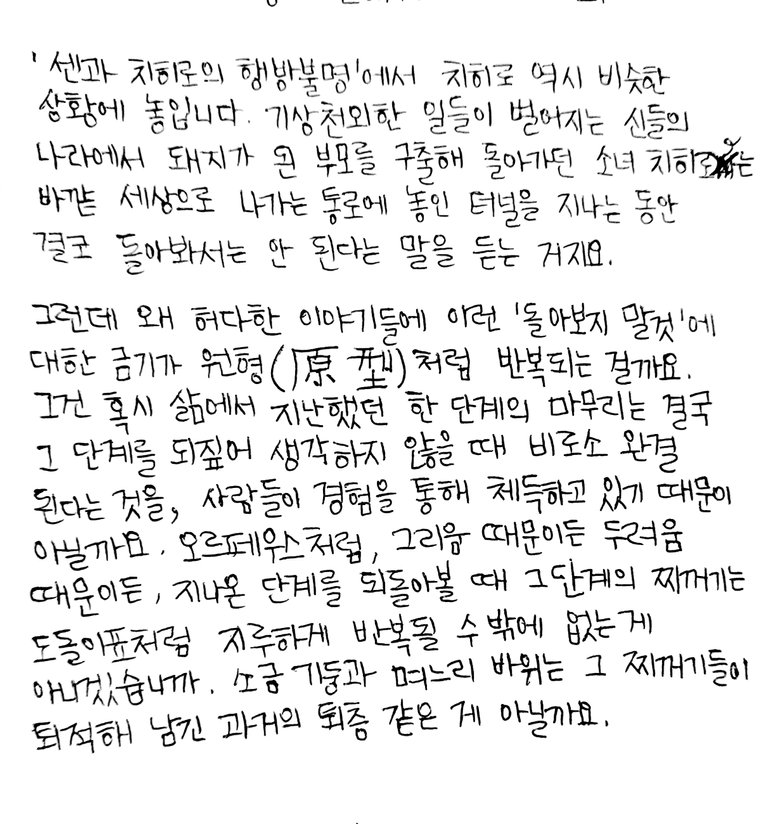 '센과 치히로의 행방불명'에서 치히로 역시 비슷한
상황에 놓입니다. 기상천외한 일들이 벌어지는 신들의
나라에서 돼지가 된 부모를 구출해 돌아가던 소녀 치히로는
바깥 세상으로 나가는 통로에 놓인 터널을 지나는 동안
결코 돌아봐서는 안 된다는 말을 듣는 거지요.
그런데 왜 허다한 이야기들에 이런 '돌아보지 말것'에
대한 금기가 원형(原型)처럼 반복되는 걸까요.
그건 혹시 삶에서 지난했던 한 단계의 마무리는 결국
그 단계를 되짚어 생각하지 않을 때 비로소 완결
된다는 것을, 사람들이 경험을 통해 체득하고 있기 때문이
아닐까요. 오르페우스처럼, 그리움 때문이든 두려움
때문이든, 지나온 단계를 되돌아볼 때 그단계의 찌꺼기는
도돌이표처럼 지루하게 반복될 수 밖에 없는 게
아니겠습니까. 소금 기둥과 며느리 바위는 그 찌꺼기들이
퇴적해 남긴 과거의 퇴층 같은 게 아닐까요.